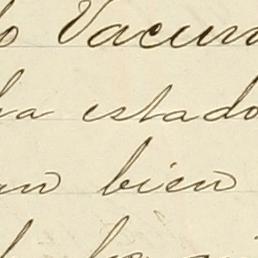 o Vacun
ha estado
an bien